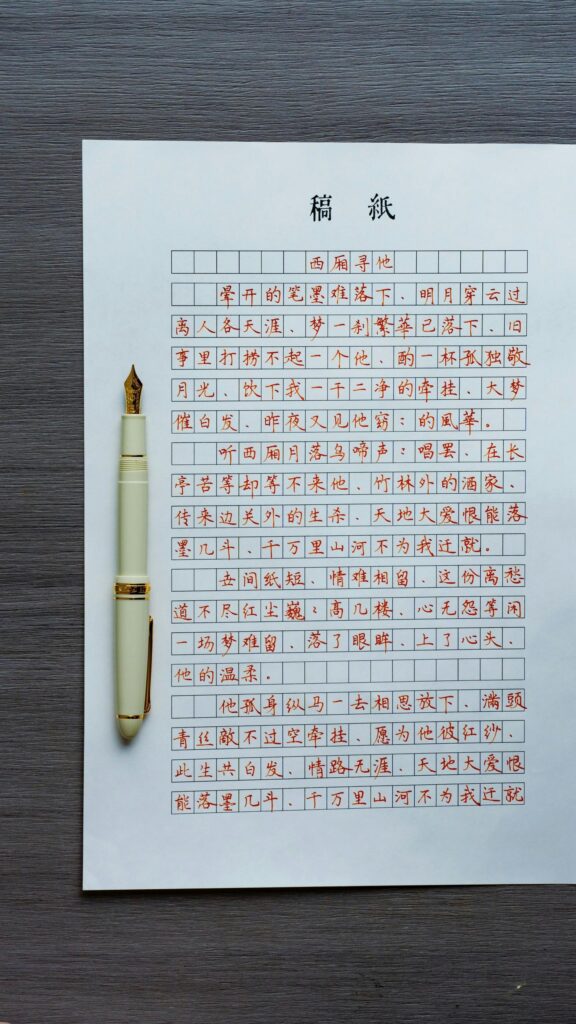 稿 紙
西厢寻他
晕开的笔墨难落下、明月穿云过
离人各天涯、梦一刹繁華已落下、旧
事里打捞不起一个他、酌一杯孤独敬
月光、饮下我一干二净的牵挂、大梦
催白发、昨夜又见他窈:的風華。
听西厢月落乌啼声:唱罢、在长
亭苦等却等不来他、竹林外的酒家、
传来边关外的生杀、天地大爱恨能落
墨几斗、千万里山河不为我迁就。
世间纸短、情难相留、这份离愁
道不尽红尘巍:高几楼、心无怨等闲
一场梦难留、落了眼眸、上了心头、
他的温柔。
他孤身纵马一去相思放下、满頭
青丝敵不过空牵挂、愿为他披红纱、
此生共白发、情路无涯、天地大爱恨
能落墨几斗、千万里山河不为我迁就